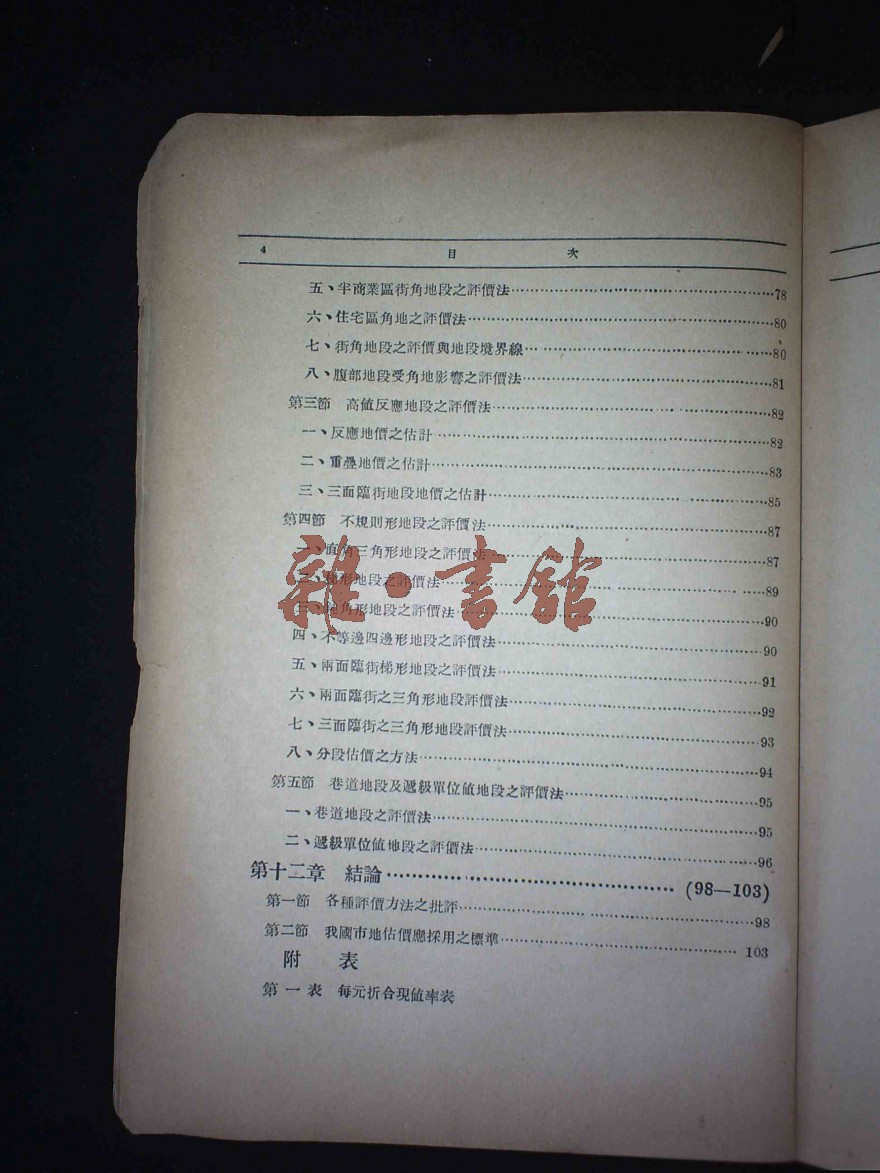 4 目 次
五、半商業區街角地段之評價法……78
六、住宅區角地之評價法……80
七、街角地段之評價與地段境界線……80
八、腹部地段受角地影響之評價法……81
第三節 高值反應地段之評價法……82
一、反應地價之估計……82
二、重疊地價之估計……83
三、三面臨街地段地價之估計……85
第四節 不規則形地段之評價法……87
一、直角三角形地段之評價法……87
二、梯形地段之評價法……89
三、角形地段之評價法……90
四、不等邊四邊形地段之評價法……90
五、兩面臨街梯形地段之評價法……91
六、兩面臨街之三角形地段評價法……92
七、三面臨街之三角形地段評價法……93
八、分段估價之方法……94
第五節 巷道地段及遞級單位值地段之評價法……95
一、巷道地段之評價法……95
二、遞級單位值地段之評價法……96
第十二章 結論……(98—103)
第一節 各種評價方法之批評……98
第二節 我國市地估價應採用之標準……103
附 表
第一表 每元折合現值率表
雜·書館